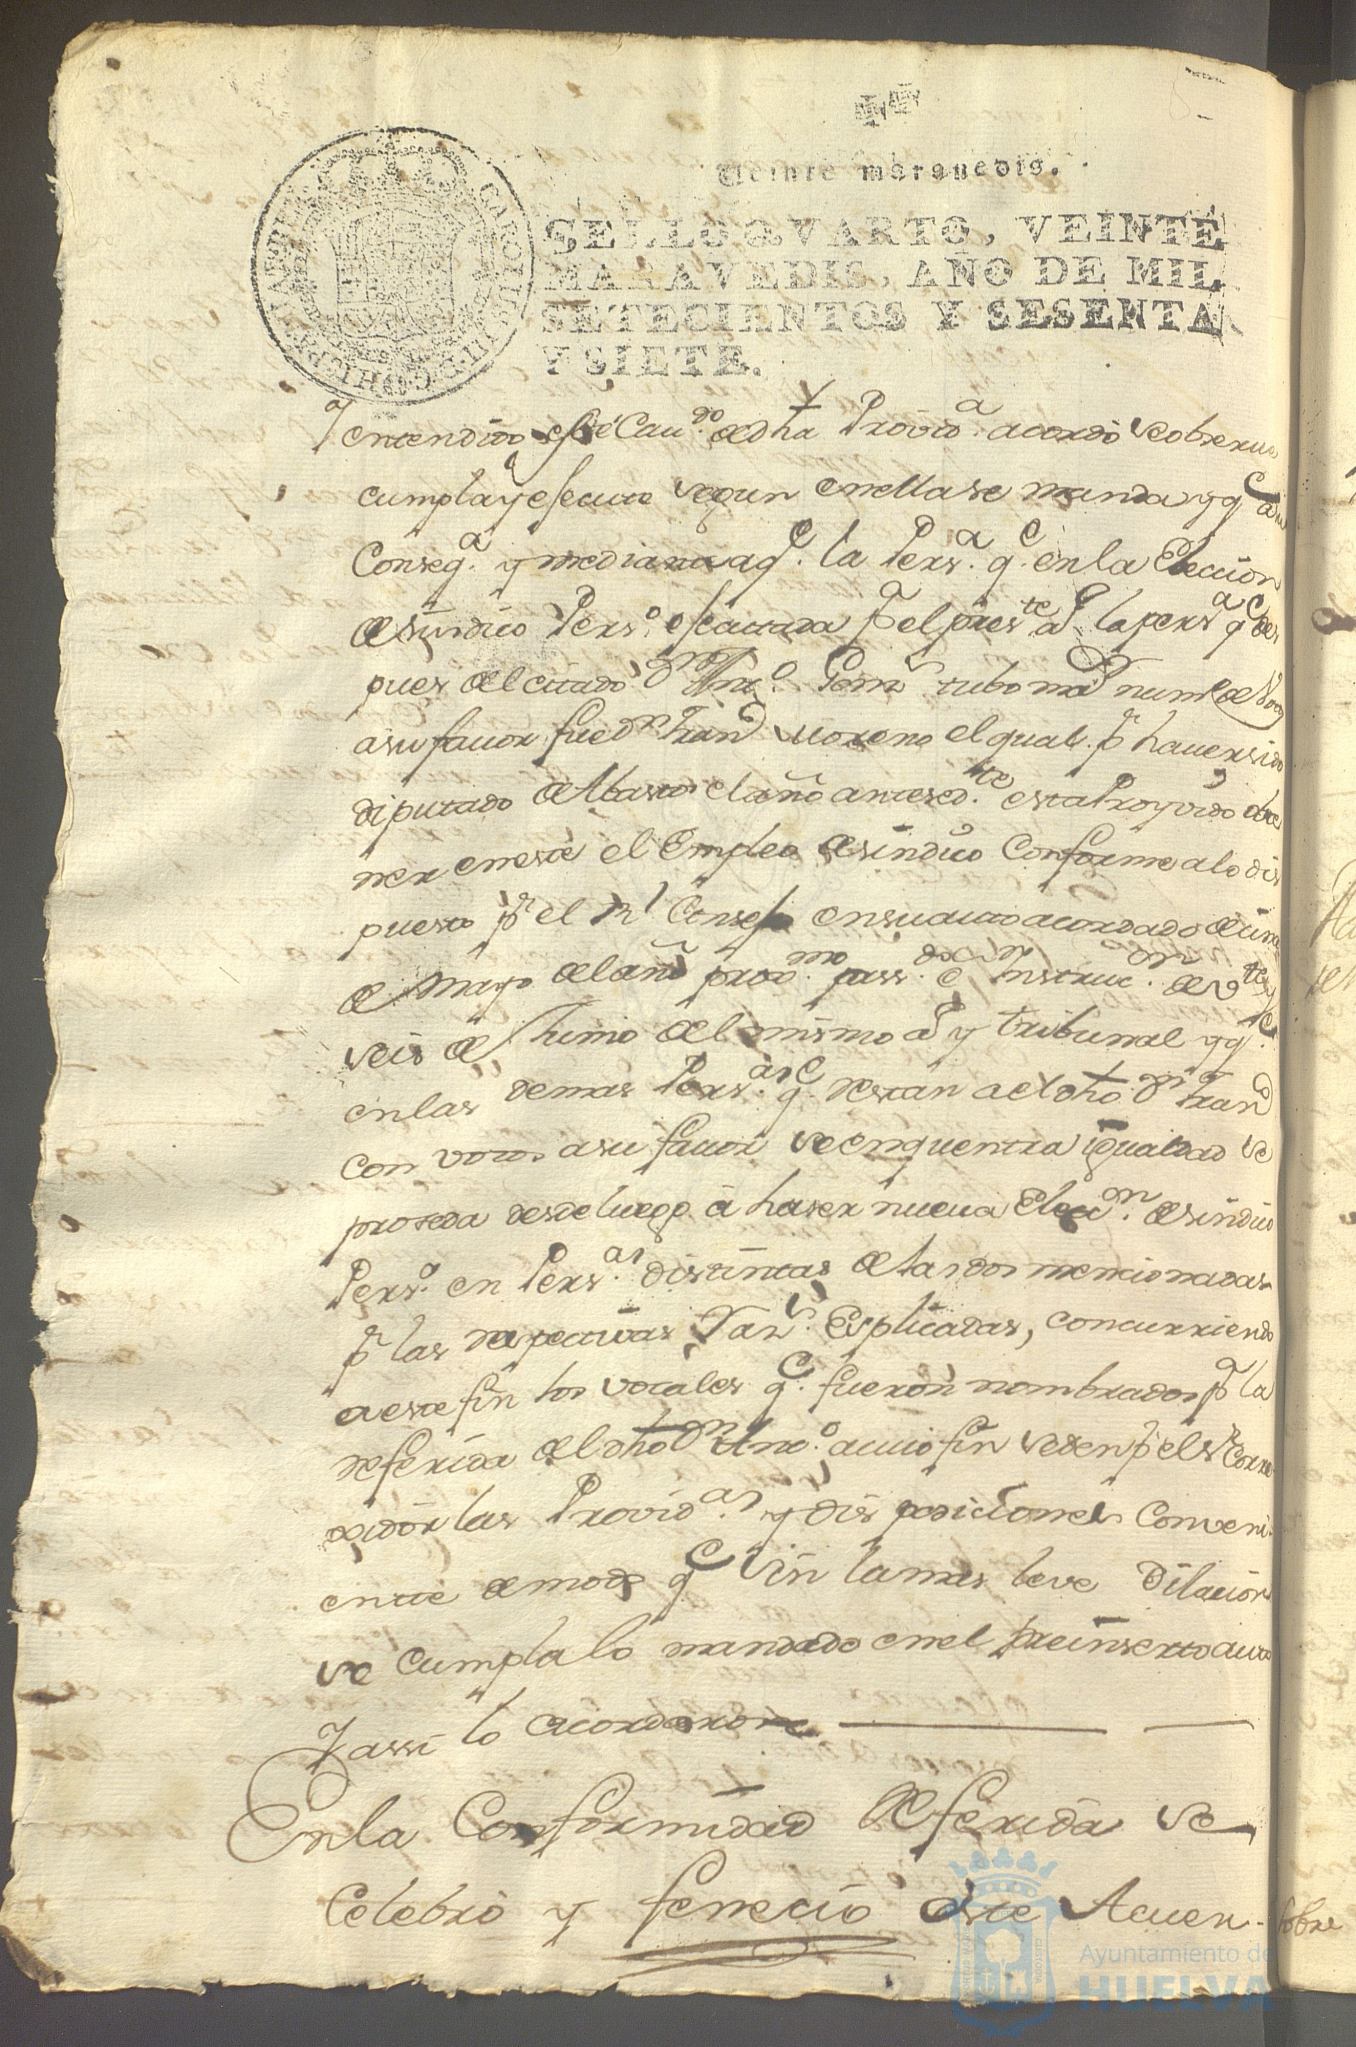 Veinte marauedis.
SELLO QVARTO, VEINTE
MARAVEDIS, AÑO DE MIL
SETECIENTOS Y SESENTA
Y SIETE.
CAROLUS III D G HISPANIAR REX
Y entendido este Cau.do de dha Provid.a acordó se obserue
cumpla y efecute segun en ella se manda y q.e en su
Conseq.a y mediante a q.e la Pers.a q.e en la Eleccion
de sindico Pers.o efectuada p.r el pres.te a.o la pers.a q.e des
pues del citado D.n Ant.o tubo mas num.o de Votos
a su fauor fue D.n Fran.co Moreno el qual p.r hauer sido
diputado de Abastos el año antesed.te esta Proyvido obte
ner en este el Empleo de sindico Conforme a lo dis
puesto p.r el R.l Consejo en su auto acordado de cinco
de Mayo del año prox.mo pass.do e Instruc.on de v.te y
seis de Junio del mismo a.o y tribunal y q.e
en las demas Pers.as q.e restan a el dho D.n Fran.co
con votos a su fauor se enquentra igualdad se
proseda desde luego á haser nueua Elecc.on de sindico
Pers.o en Pers.as distintas de las dos mencionadas
p.r las respectivas Esplicadas, concurriendo
a este fin los vocales q.e fueron nombrados p.r la
referida del dho D.n Ant.o a cuio fin se den p.r el s.r Corre
gidor las Provid.as y dis posiciones Conveni
ente de modo q.e sin la mas leve Dilacion
se cumpla lo mandado en el preinserto auto
Y assi lo acordaron
En la Conformidad Referida se
Celebró y feneció este Acuer-
sobre
Ayuntamiento de
HUELVA